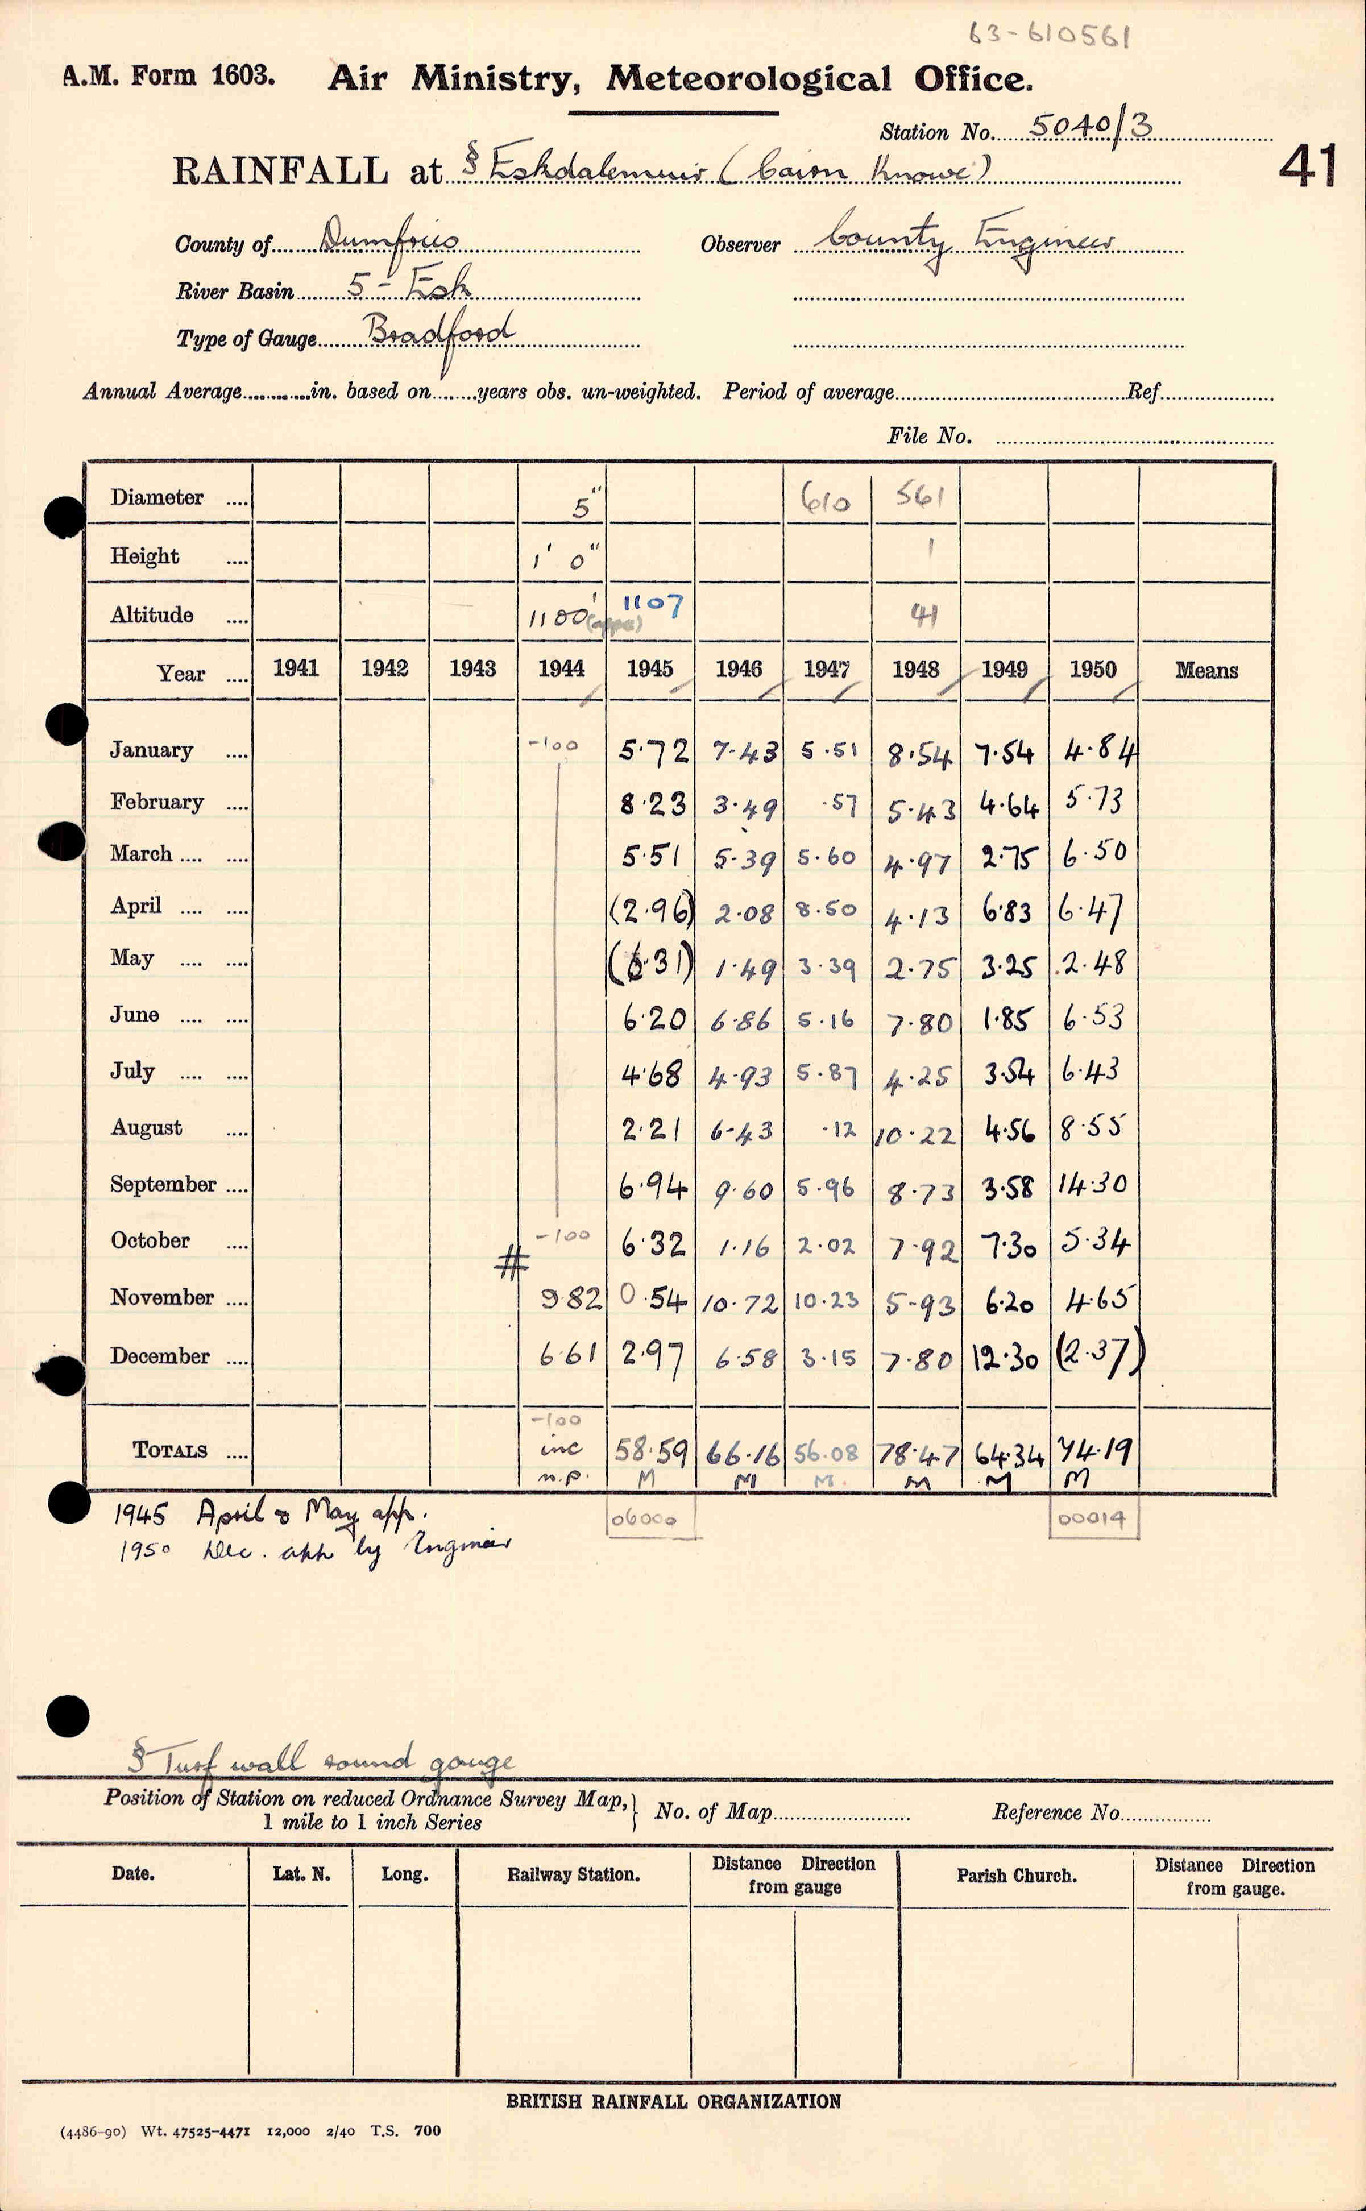 63-610561
A.M. Form 1603. Air Ministry, Meteorological Office.
Station No. 5040/3
41
RAINFALL at § Eskdalemuir (Cairn Knowe)
County of Dumfries Observer County Engineer
River Basin 5 - Esk
Type of Gauge Bradford
Annual Average in. based on years obs. un-weighted. Period of average Ref.
File No.
Diameter 5" 610 561
Height 1' 0" 1
Altitude 1100' (appx) 1107 41
Year 1941 1942 1943 1944 1945 1946 1947 1948 1949 1950 Means
January -100 5.72 7.43 5.51 8.54 7.54 4.84
February 8.23 3.49 .57 5.43 4.64 5.73
March 5.51 5.39 5.60 4.97 2.75 6.50
April (2.96) 2.08 8.50 4.13 6.83 6.47
May (6.31) 1.49 3.39 2.75 3.25 2.48
June 6.20 6.86 5.16 7.80 1.85 6.53
July 4.68 4.93 5.87 4.25 3.54 6.43
August 2.21 6.43 .12 10.22 4.56 8.55
September 6.94 9.60 5.96 8.73 3.58 14.30
October -100 6.32 1.16 2.02 7.92 7.30 5.34
#
November 9.82 0.54 10.72 10.23 5.93 6.20 4.65
December 6.61 2.97 6.58 3.15 7.80 12.30 (2.37)
-100
TOTALS inc 58.59 66.16 56.08 78.47 64.34 74.19
n.p. M M M. M M M
1945 April & May app. 06000 00014
1950 Dec. app by Engineer
§ Turf wall round gauge
Position of Station on reduced Ordnance Survey Map, 1 mile to 1 inch Series } No. of Map Reference No.
Date. Lat. N. Long. Railway Station. Distance Direction from gauge Parish Church. Distance Direction from gauge.
BRITISH RAINFALL ORGANIZATION
(4486-90) Wt. 47525-4471 12,000 2/40 T.S. 700